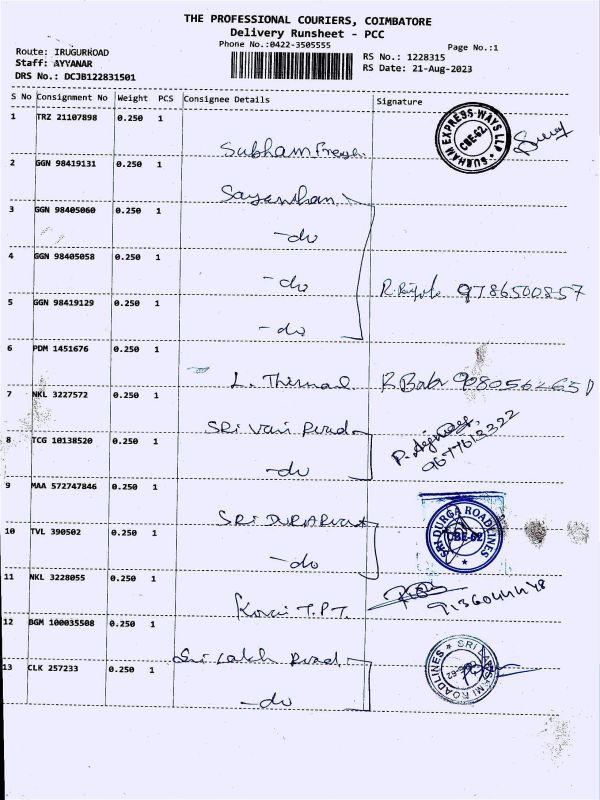 THE PROFESSIONAL COURIERS, COIMBATORE
Delivery Runsheet - PCC
Phone No.:0422-3505555
Page No.:1
Route: IRUGURROAD
Staff: AYYANAR
DRS No.: DCJB122831501
RS No.: 1228315
RS Date: 21-Aug-2023
S No Consignment No Weight PCS Consignee Details Signature
1 TRZ 21107898 0.250 1
Subham
SURHAM EXPRESS-WAYS LLP CBE-62
2 GGN 98419131 0.250 1
3 GGN 98405060 0.250 1
-do
4 GGN 98405058 0.250 1
-do
9786500857
5 GGN 98419129 0.250 1
-do
6 PDM 1451676 0.250 1
L. R Babu
7 NKL 3227572 0.250 1
SRi Vari
9677613322
8 TCG 10138520 0.250 1
-do
9 MAA 572747846 0.250 1
SRI
SRI DURGA ROADLINES CBE-62
10 TVL 390502 0.250 1
-do
11 NKL 3228055 0.250 1
Kovai T.P.T.
12 BGM 100035508 0.250 1
Sri
SRI LAKSHMI ROADLINES
13 CLK 257233 0.250 1
-do